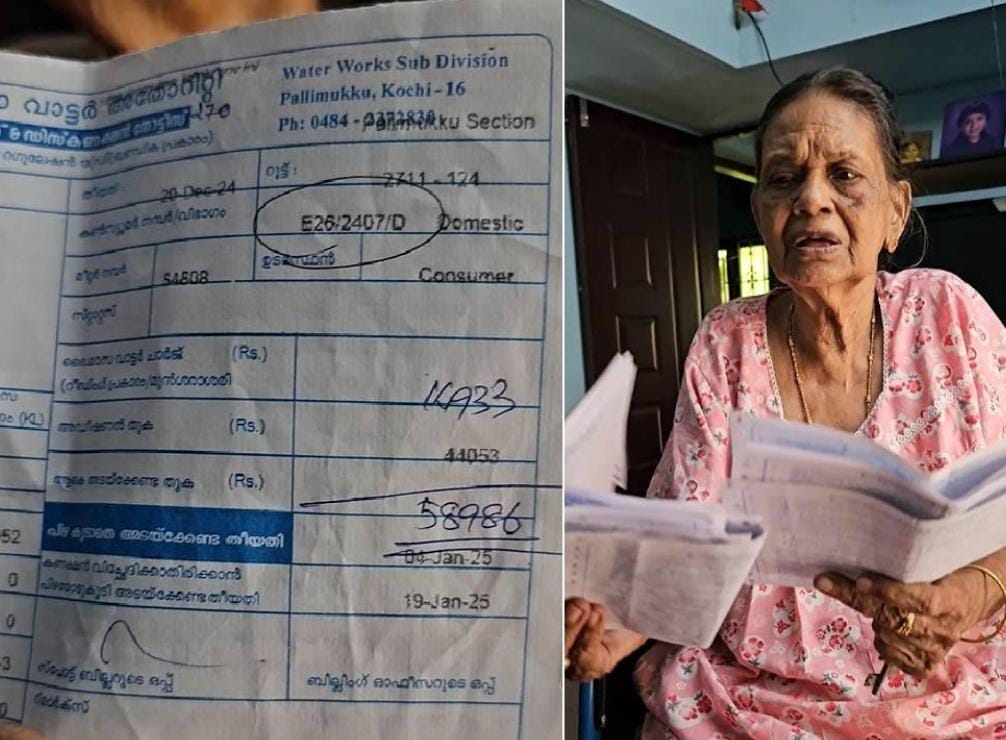 വാട്ടർ അതോറിറ്റി
Water Works Sub Division
Pallimukku, Kochi - 16
Ph: 0484 -
Pallimukku Section
& ഡിസ്കണക്ഷൻ നോട്ടീസ് 270
തീയതി : 20-Dec-24
റൂട്ട് : 2711 - 124
കൺസ്യൂമർ നമ്പർ/വിഭാഗം E26/2407/D Domestic
മീറ്റർ നമ്പർ 54508 Consumer
സ്റ്റാറ്റസ്
ദ്വൈമാസ വാട്ടർ ചാർജ് (Rs.)
(റീഡിംഗ് പ്രകാരം/മുൻശരാശരി 14933
അഡീഷണൽ തുക (Rs.) 44053
(KL)
ആകെ അടയ്ക്കേണ്ട തുക (Rs.) 58986
പിഴ കൂടാതെ അടയ്ക്കേണ്ട തീയതി 04-Jan-25
കണക്ഷൻ വിച്ഛേദിക്കാതിരിക്കാൻ
പിഴയോടുകൂടി അടയ്ക്കേണ്ട തീയതി 19-Jan-25
0
0
സ്പോട്ട് ബില്ലറുടെ ഒപ്പ് ബില്ലിംഗ് ഓഫീസറുടെ ഒപ്പ്
റിമാർക്സ്